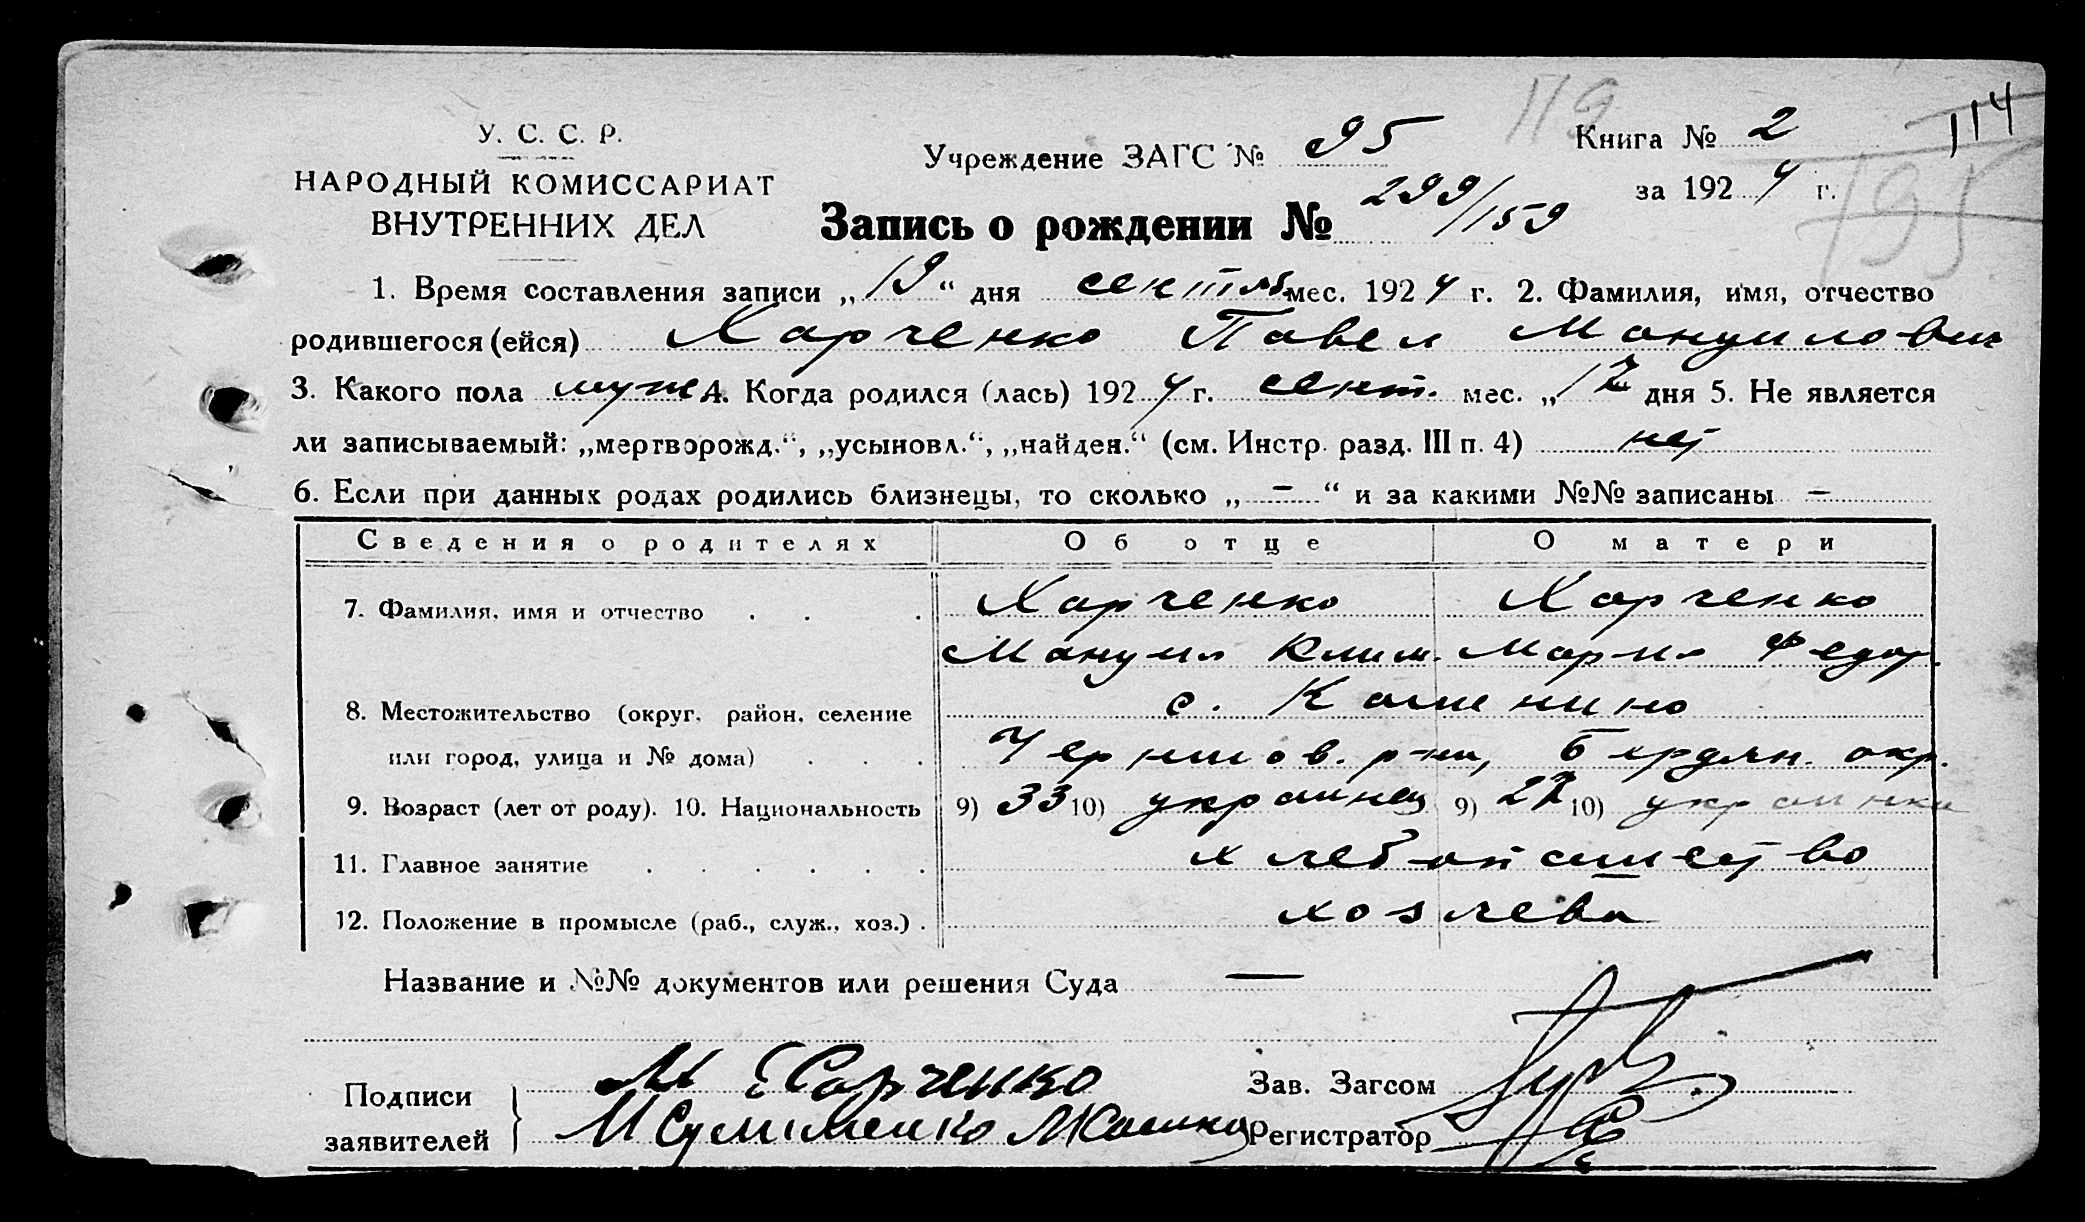 119
114
195
У. С. С. Р.
НАРОДНЫЙ КОМИССАРИАТ
ВНУТРЕННИХ ДЕЛ
Учреждение ЗАГС № 95
Книга № 2
за 1924 г.
Запись о рождении № 299/159
1. Время составления записи „19“ дня сентяб мес. 1924 г. 2. Фамилия, имя, отчество
родившегося (ейся) Харченко Павел Мануилович
3. Какого пола муж 4. Когда родился (лась) 1924 г. сент. мес. „12 дня 5. Не является
ли записываемый: „мертворожд.“, „усыновл.“, „найден.“ (см. Инстр. разд. III п. 4) нет
6. Если при данных родах родились близнецы, то сколько „ – “ и за какими №№ записаны –
Сведения о родителях Об отце О матери
7. Фамилия, имя и отчество . . . Харченко Харченко
Мануил Клим. Мария Федор.
8. Местожительство (округ, район, селение с.
или город, улица и № дома) . . . Чернигов. р-на, Бердян. окр.
9. Возраст (лет от роду). 10. Национальность 9) 33 10) украинец 9) 10) украинка
11. Главное занятие . . . . . . хлебопашество
12. Положение в промысле (раб., служ., хоз.) . хозяева
Название и №№ документов или решения Суда —
Подписи
заявителей
М Харченко
Зав. Загсом
Регистратор